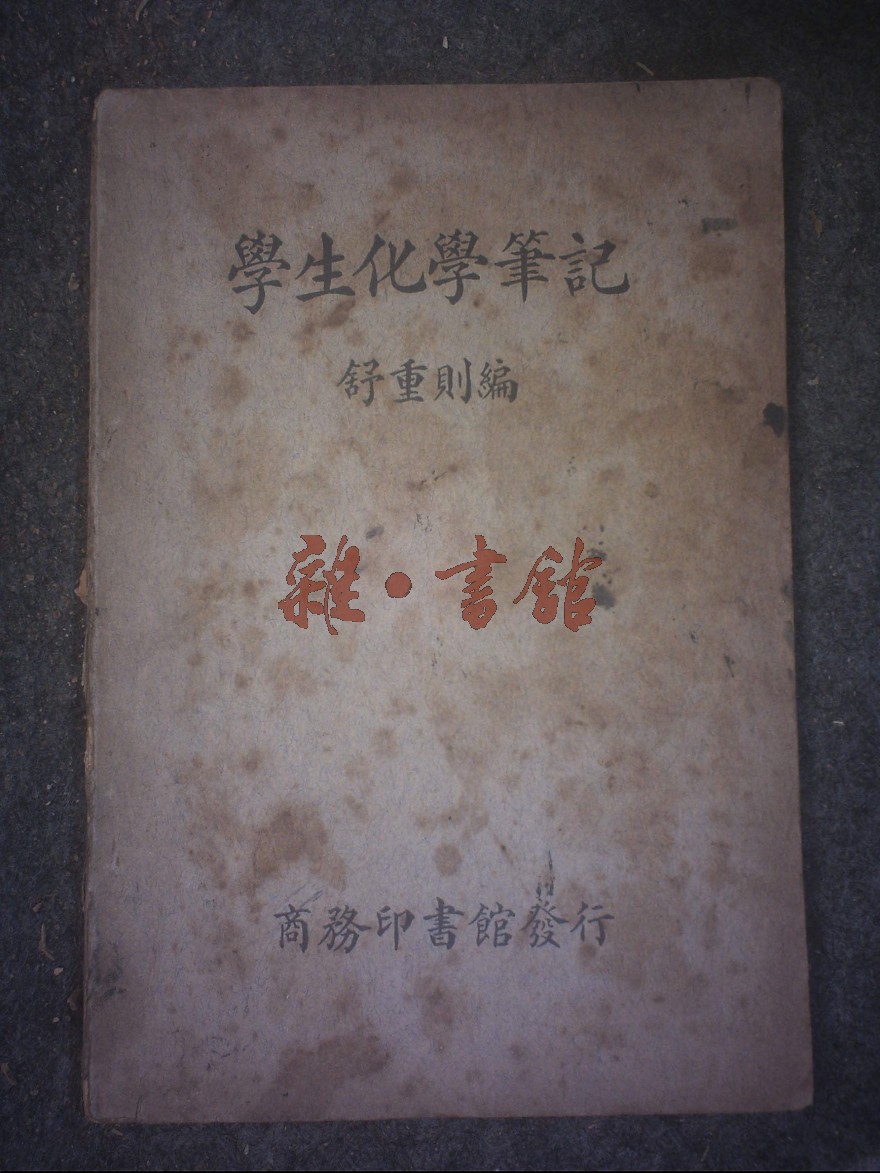 學生化學筆記
舒重則編
雜·書館
商務印書館發行